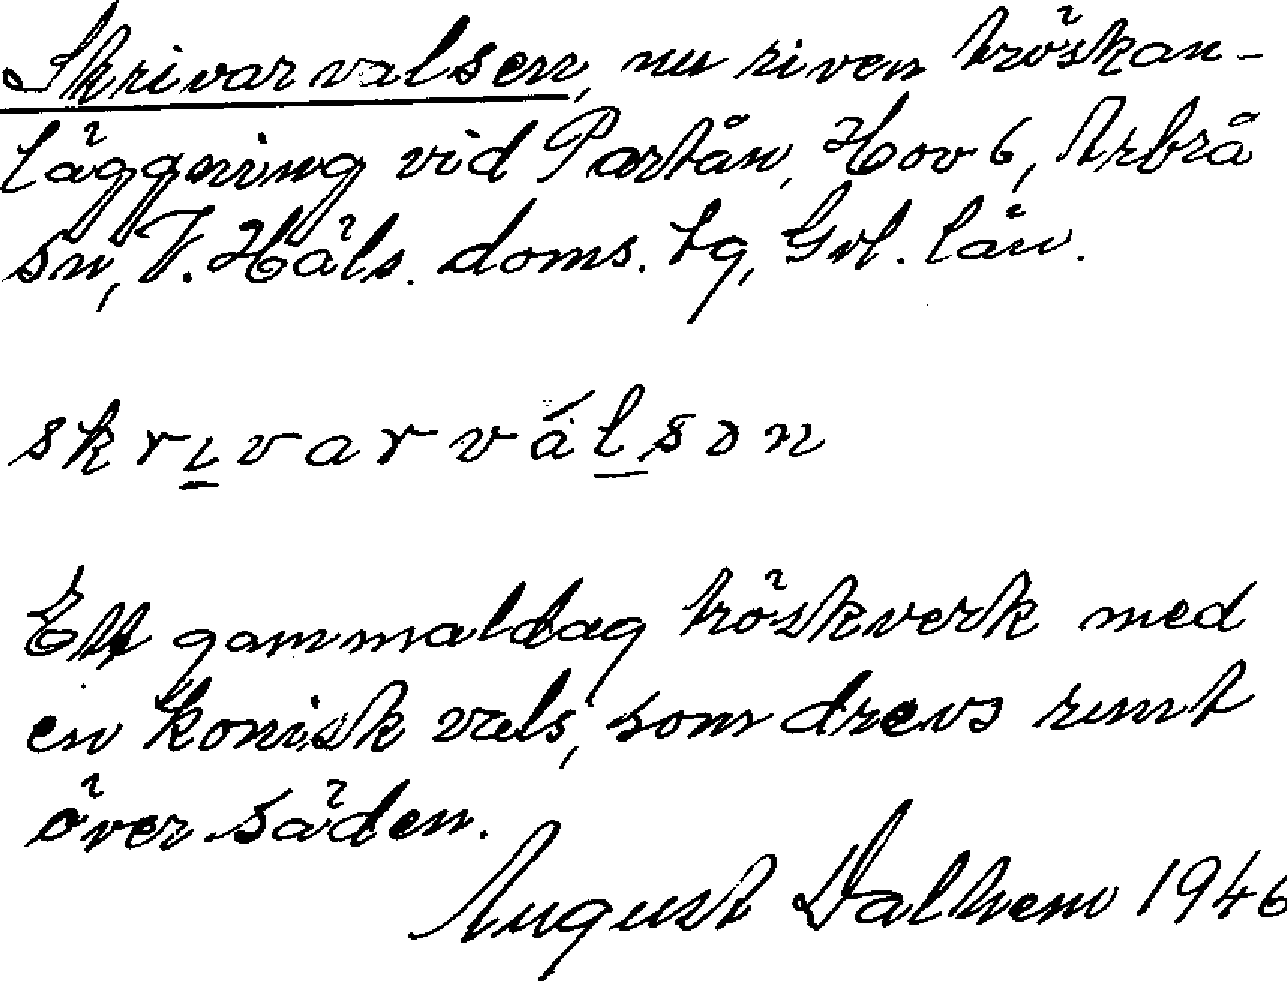 Skrivarvalsen, nu riven tröskan-
läggning vid Partån, Hov 6, Arbrå
sn, V. Häls. doms. tg, Gvl. län.
skrɩvarválsən
Ett gammaldag tröskverk med
en konisk vals, som drevs runt
över säden.
August Dalhem 1946